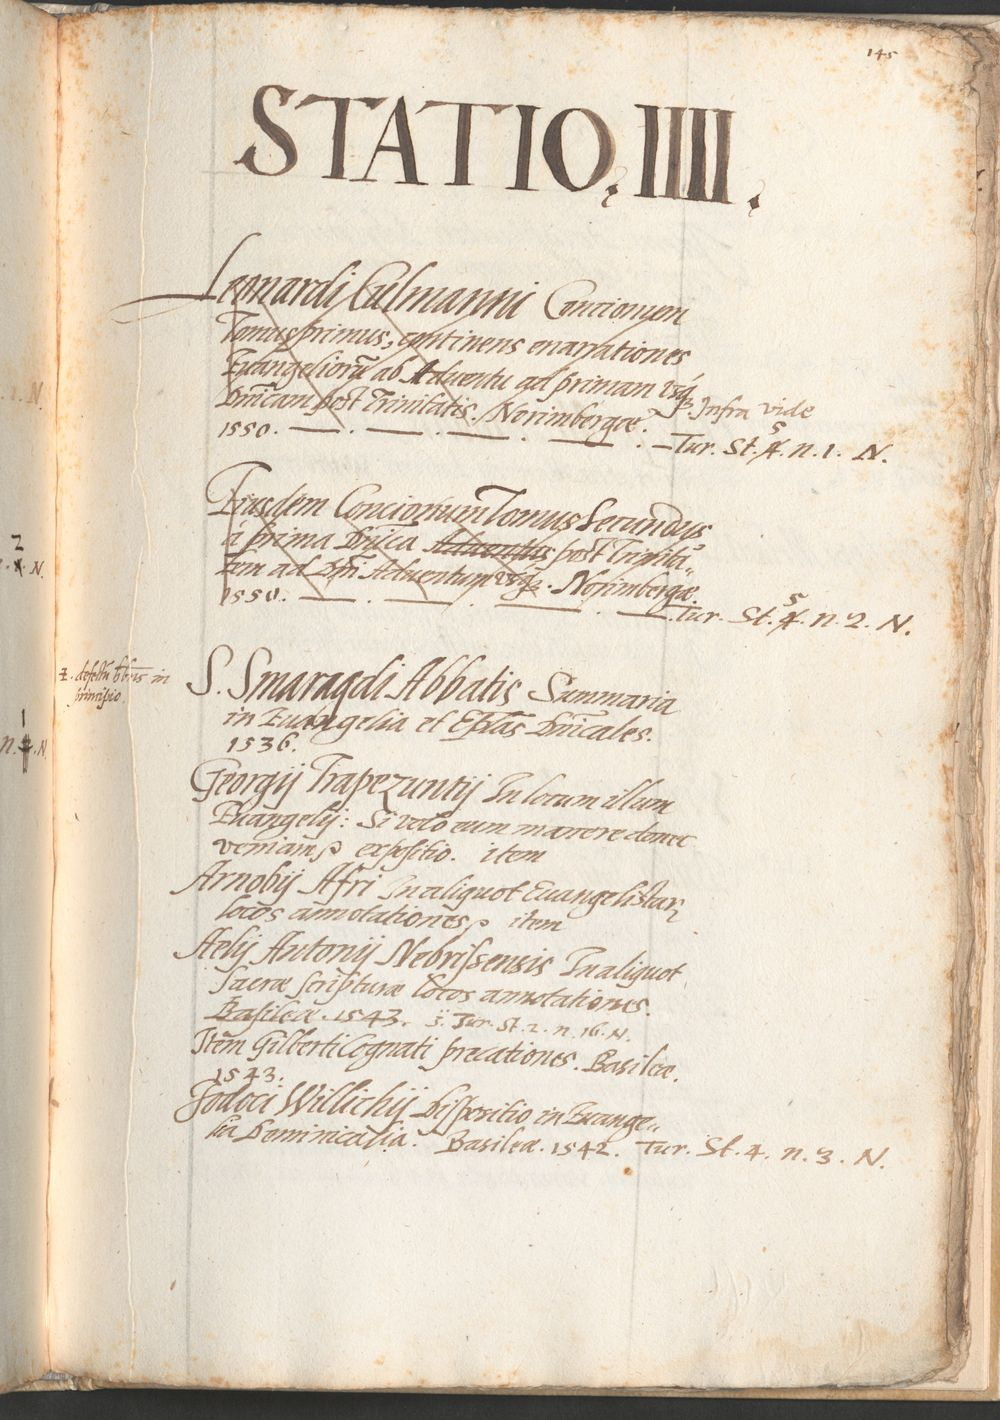 145
STATIO. IIII.
Leonardi Culmanni Concionum
Tomus primus, continens enarrationes
Euangeliorũ ab Aduentu ad primam usq́;
Dñicam post Trinitatis. Norimbergæ. Infra vide
1550. — . — . — . — . — Tur. St. 5 4. n. 1. N.
Eiusdem Concionum Tomus Secundus
à prima Dñica Aduentus post Trinitã„
tem ad Dñi Aduentum usq;. Norimbergæ.
1550. — . — . — . — . Tur. St. 5 4. n. 2. N.
S. Smaragdi Abbatis Summaria
in Euangelia et Epl̃as Dñicales.
1536.
Georgij Trapezuntij In locum illum
Euangelij: Si volo eum manere donec
veniam, expositio. item
Arnobij Afri In aliquot Euangelistarꝝ
locos annotationes, item
Aelij Antonij Nebrissensis In aliquot
sacræ scripturæ locos annotationes.
Basileæ. 1543. Tur. St. 2. n. 16. N.
Item Gilberti Cognati precationes. Basileæ.
1543.
Jodoci Willichij Dispositio in Euange„
lia Dominicalia. Basileæ. 1542. Tur. St. 4. n. 3. N.
1. N.
2
. N.
in
principio
1
n. . N